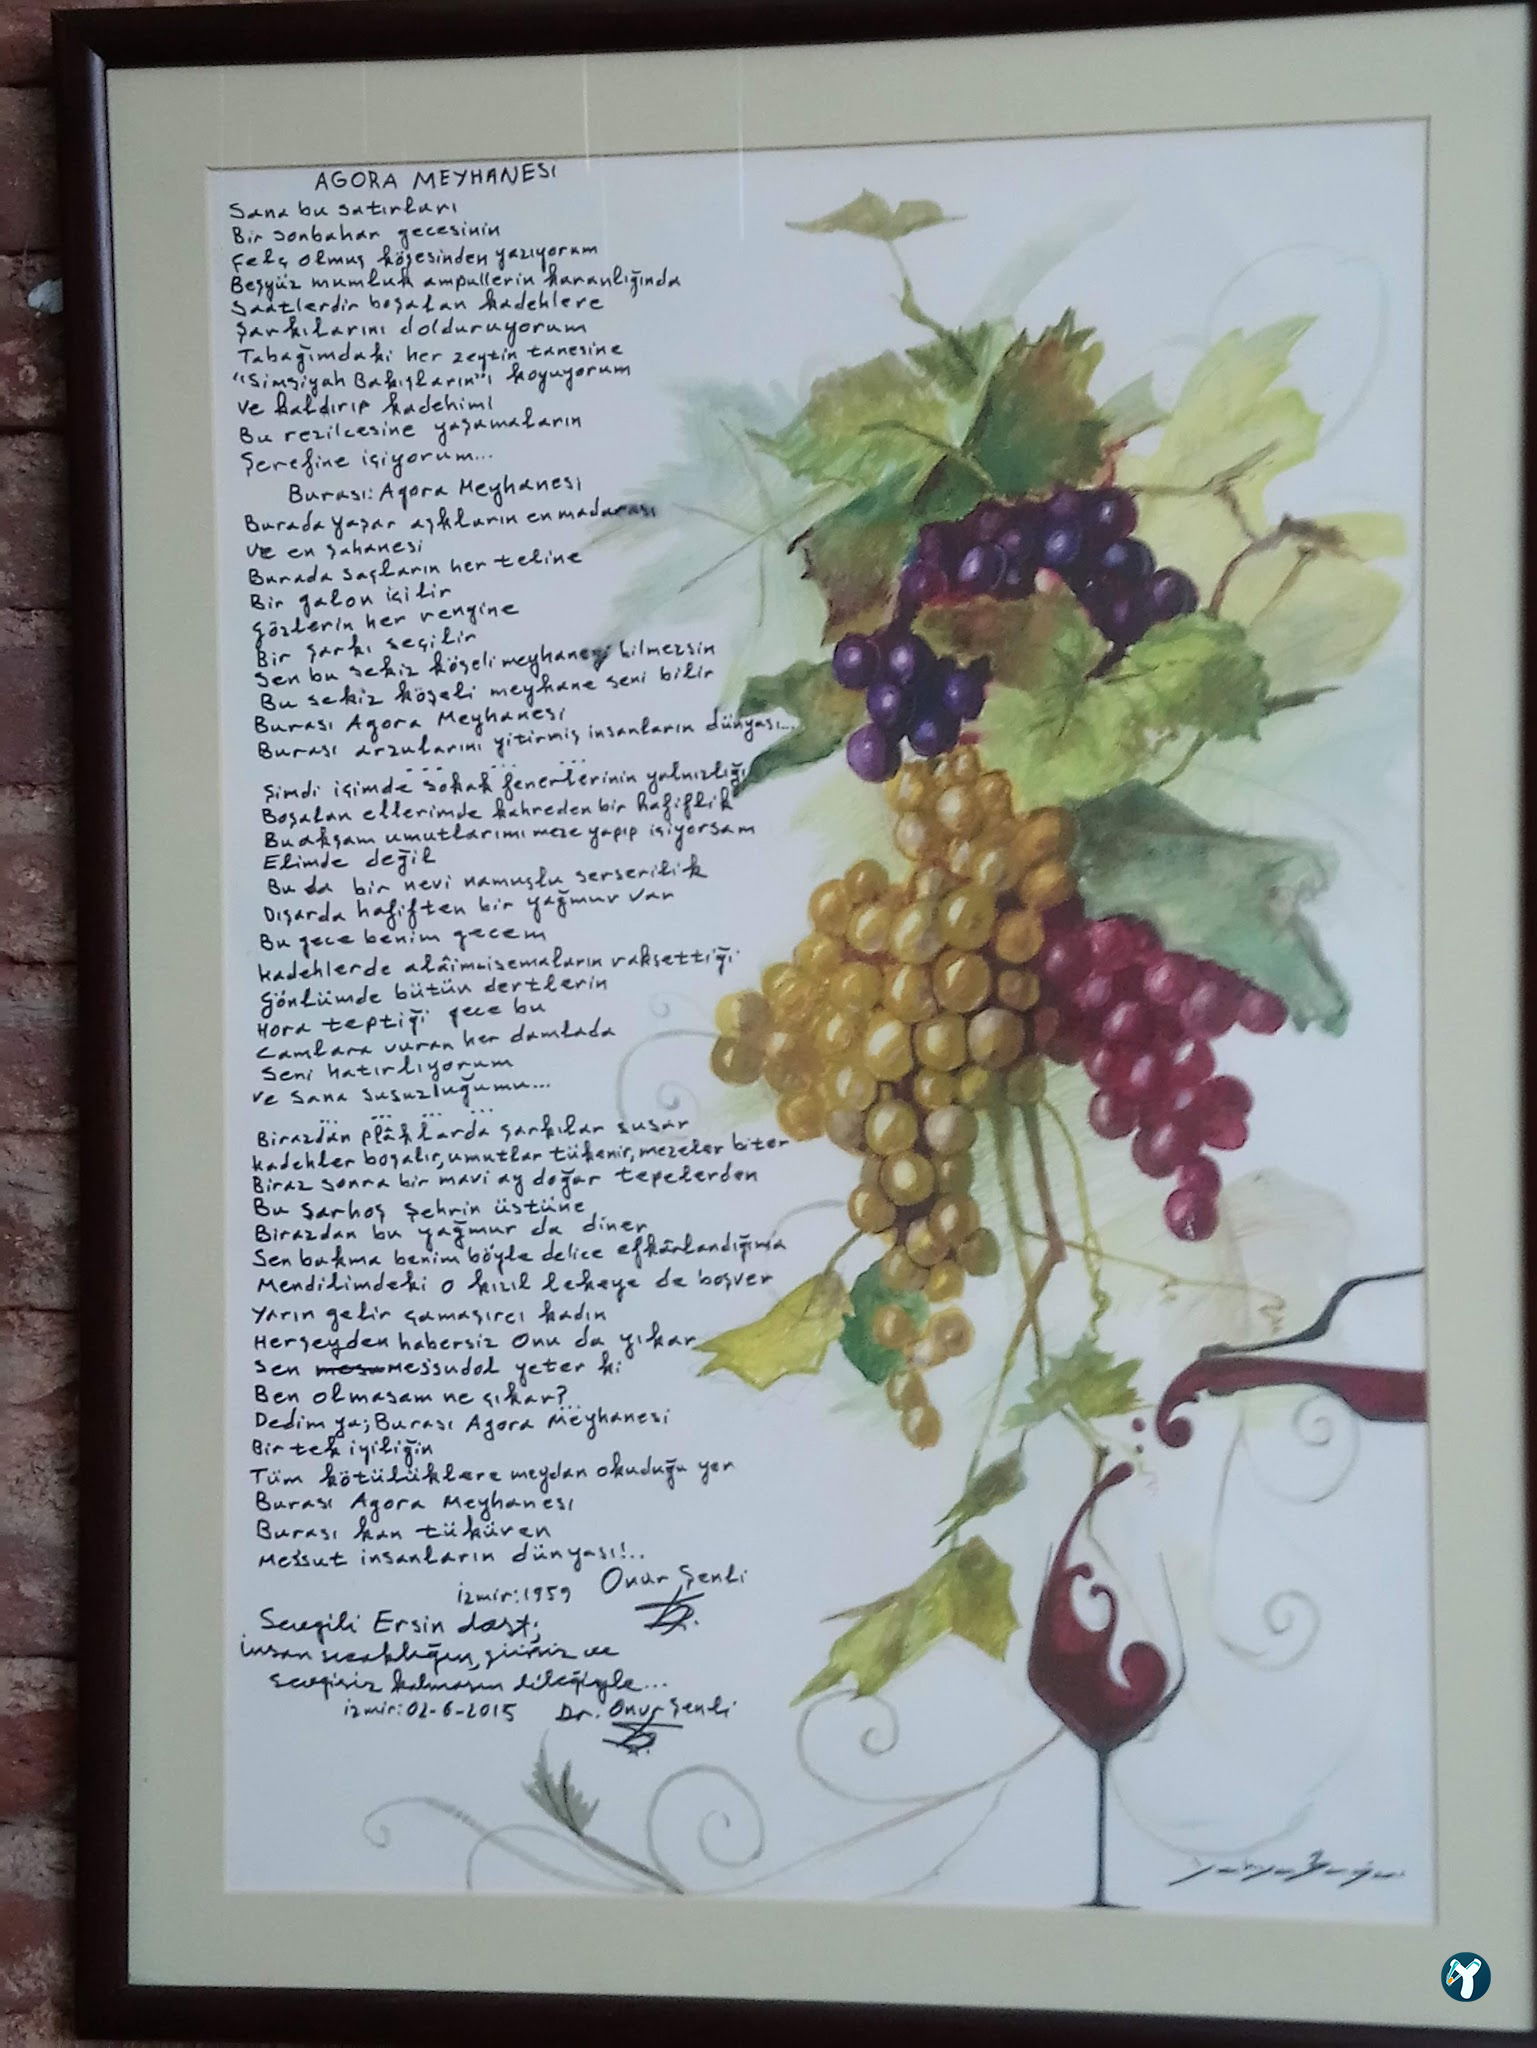 AGORA MEYHANESİ
Sana bu satırları
Bir sonbahar gecesinin
Felç olmuş köşesinden yazıyorum
Beşyüz mumluk ampullerin karanlığında
Saatlerdir boşalan kadehlere
Şarkılarını dolduruyorum
Tabağımdaki her zeytin tanesine
"Simsiyah Bakışların"ı koyuyorum
Ve kaldırıp kadehimi
Bu rezilcesine yaşamaların
Şerefine içiyorum...
Burası: Agora Meyhanesi
Burada yaşar aşkların en madarası
Ve en şahanesi
Burada saçların her teline
Bir galon içilir
Gözlerin her rengine
Bir şarkı seçilir
Sen bu sekiz köşeli meyhaneyi bilmezsin
Bu sekiz köşeli meyhane seni bilir
Burası Agora Meyhanesi
Burası arzularını yitirmiş insanların dünyası...
... ... ...
Şimdi içimde sokak fenerlerinin yalnızlığı
Boşalan ellerimde kahreden bir hafiflik
Bu akşam umutlarımı meze yapıp içiyorsam
Elimde değil
Bu da bir nevi namuslu serserilik
Dışarda hafiften bir yağmur var
Bu gece benim gecem
Kadehlerde alâim-i semaların raksettiği
Gönlümde bütün dertlerin
Hora teptiği gece bu
Camlara vuran her damlada
Seni hatırlıyorum
Ve sana susuzluğumu...
... ... ... ...
Birazdan plâklarda şarkılar susar
Kadehler boşalır, umutlar tükenir, mezeler biter
Biraz sonra bir mavi ay doğar tepelerden
Bu sarhoş şehrin üstüne
Birazdan bu yağmur da diner
Sen bakma benim böyle delice efkârlandığıma
Mendilimdeki o kızıl lekeye de boşver
Yarın gelir çamaşırcı kadın
Herşeyden habersiz onu da yıkar
Sen mes'ud ol yeter ki
Ben olmasam ne çıkar?
...
Dedim ya; Burası Agora Meyhanesi
Bir tek iyiliğin
Tüm kötülüklere meydan okuduğu yer
Burası Agora Meyhanesi
Burası kan tüküren
Mes'sut insanların dünyası!..
İzmir: 1959 Onur Şenli
Sevgili Ersin dost;
İnsan sıcaklığın, şiirsiz ve
sevgisiz kalmasın dileğiyle...
İzmir: 02-6-2015 Dr. Onur Şenli